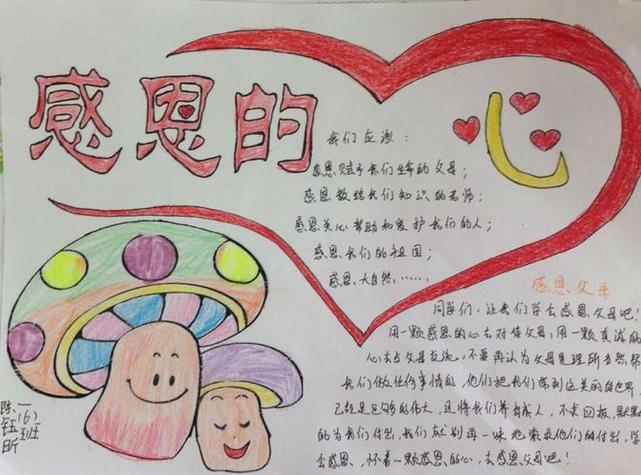 感恩的心
我们应该：
感恩赋予我们生命的父母；
感恩教给我们知识的老师；
感恩关心帮助和爱护我们的人；
感恩我们的祖国；
感恩大自然……
感恩父母
同学们，让我们学会感恩父母吧！
用一颗感恩的心去对待父母，用一颗真诚的
心去与父母交流，不要再认为父母是理所当然帮
我们做任何事情的，他们把我们带到这美的世界
已经是足够的伟大，且将我们养育成人，不求回报，默默
的为我们付出，我们就别再一味地索取他们的付出，学
会感恩，怀着一颗感恩的心，去感恩父母吧！
一(6)班
陈钰昕